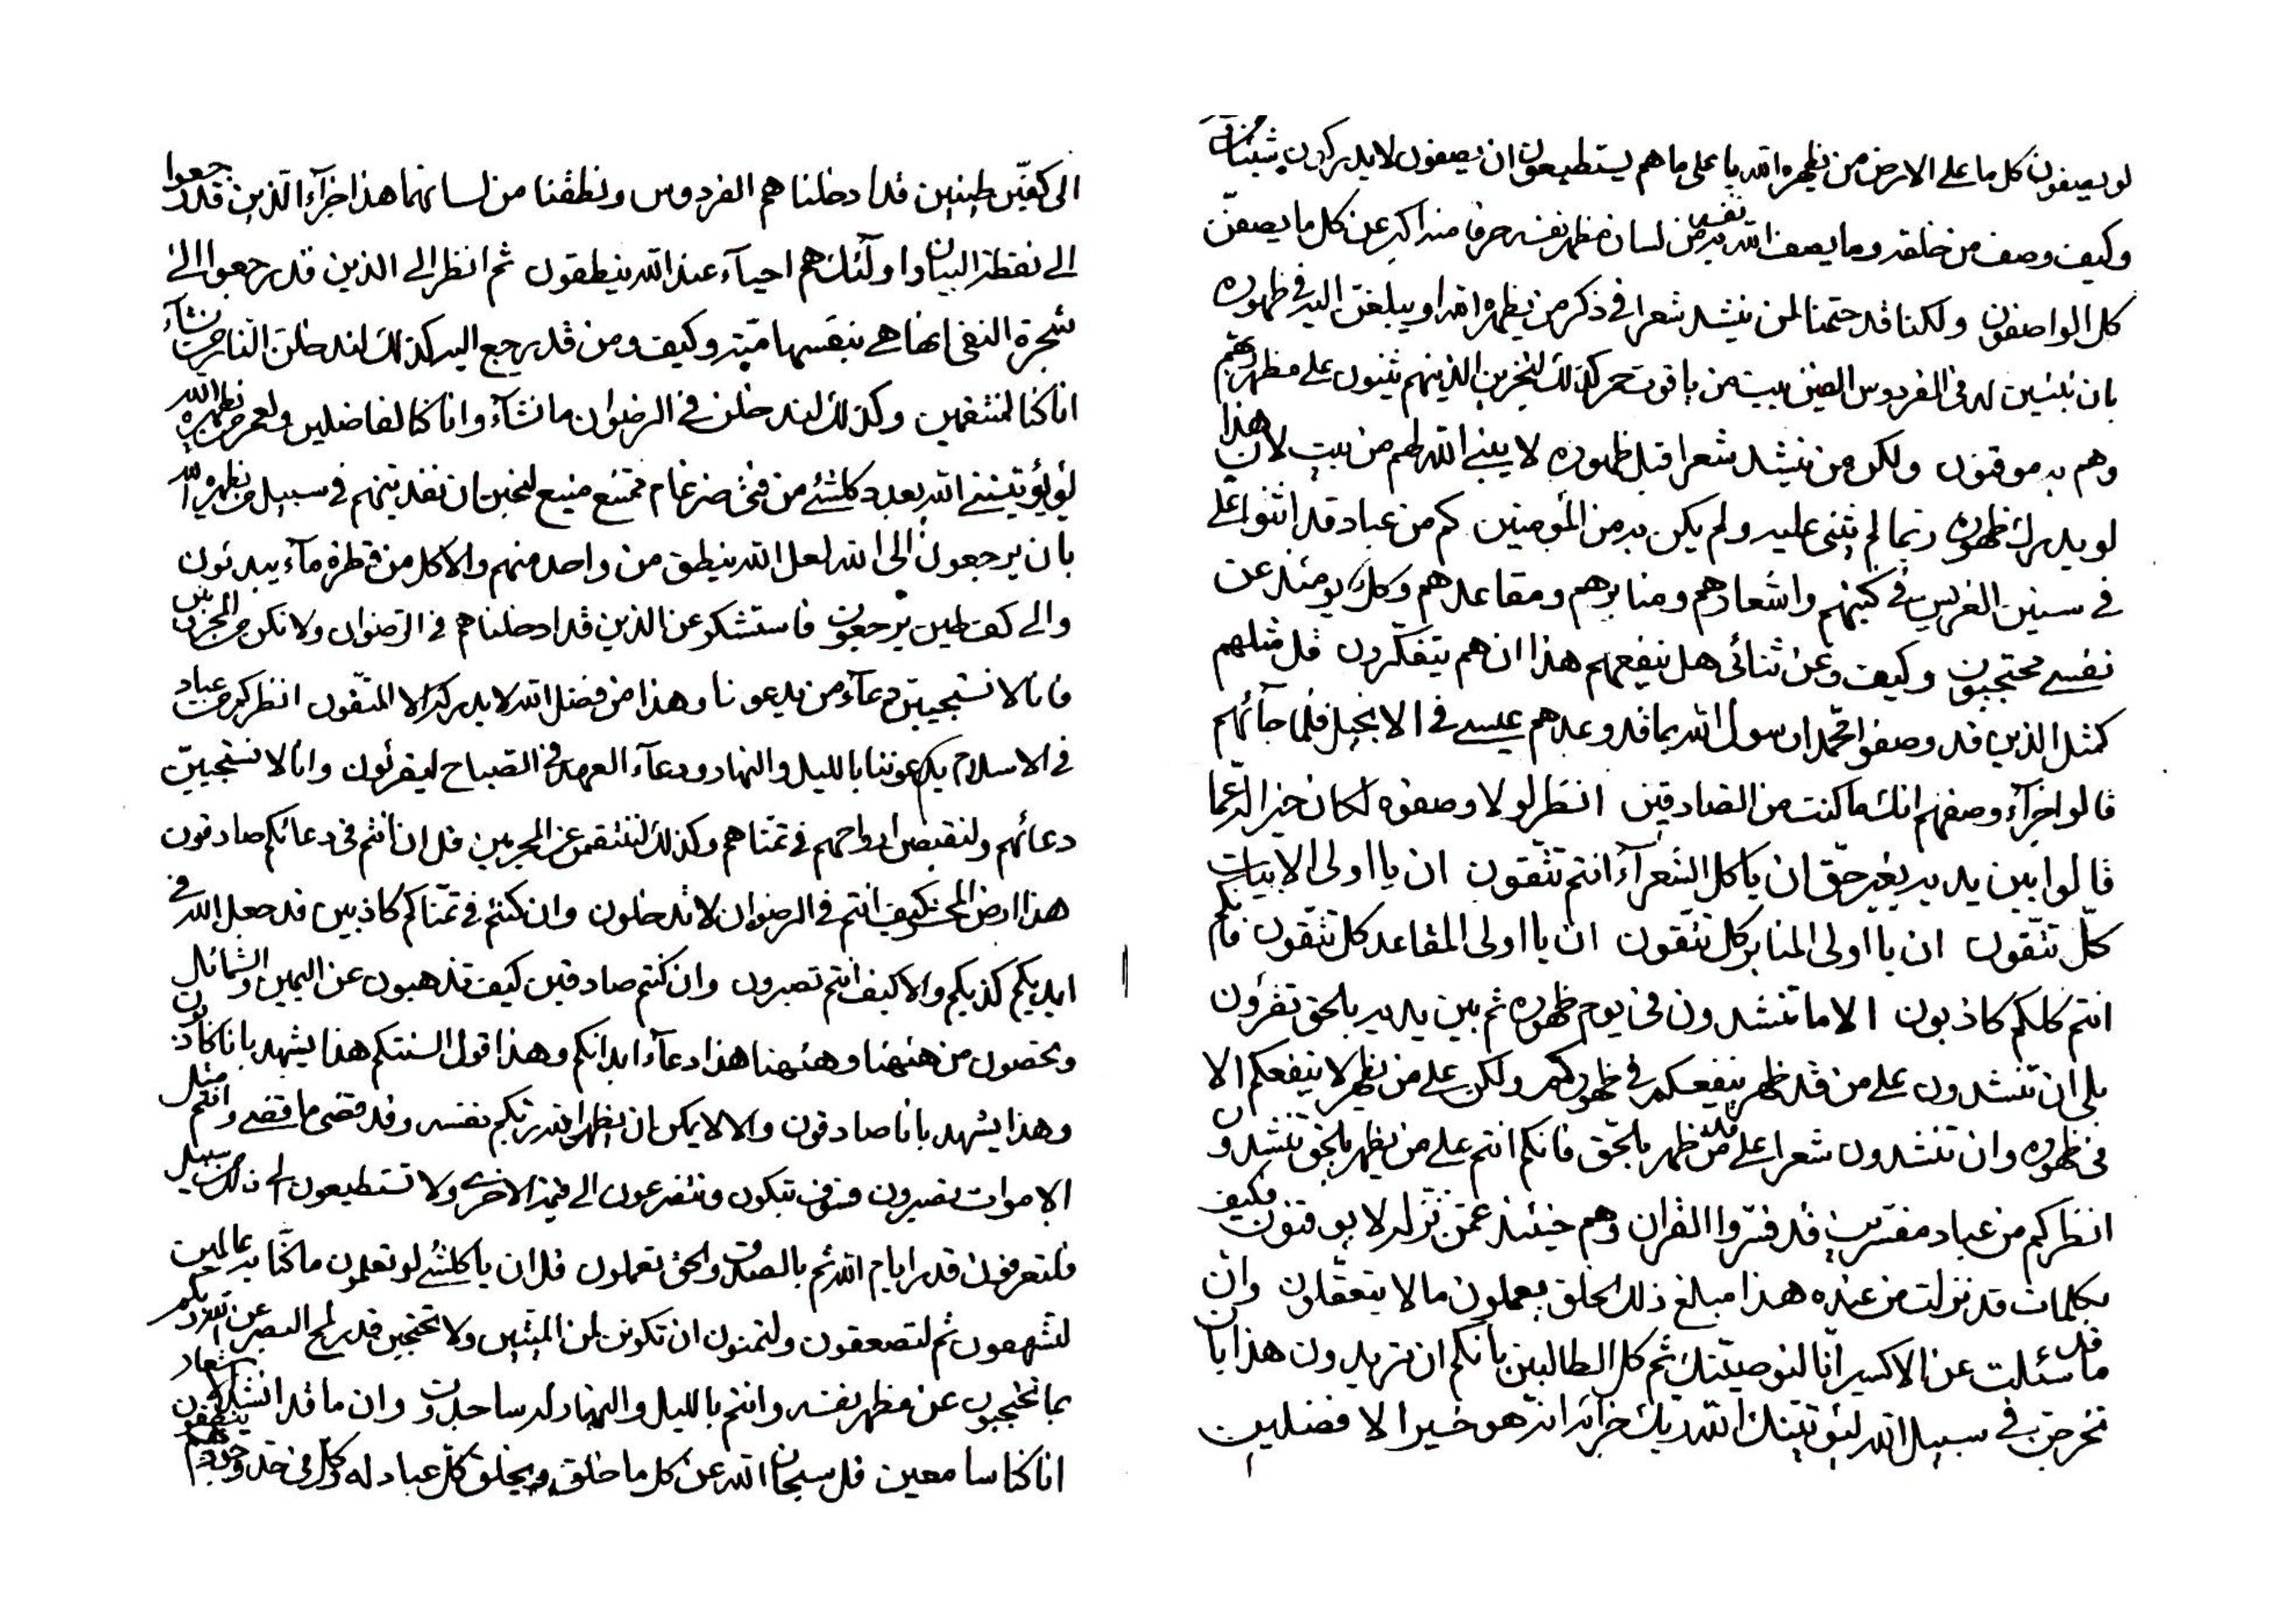 لو يصفون كل ما على الارض من يظهره الله با على ما هم يستطيعون ان يصفون لا يدركون شيئا
وكيف وصف من خلقه وما يصف الله به نفسه من لسان مظهر نفسه حرفا منه اكبر عن كل ما يصفن
كل الواصفون ولكنا قد حتمنا لمن ينشد شعرا في ذكر من يظهره الله او يبلغن اليه في ظهوره
بان نبنين له في الفردوس العين بيت من ياقوت حمر كذلك لنجزين الذينهم يثنون على مظهر ربهم
وهم به موقنون ولكن من ينشد شعرا قبل ظهوره لا يبني الله لهم من بيت لان هذا
لو يدرك ظهوره ربما لم يثنى عليه ولم يكن به من المؤمنين كم من عباد قد اثنوا على
في سنين الغرس في كتبهم واشعارهم ومنابرهم ومقاعدهم وكل يومئذ عن
نفسي محتجبون وكيف وعن ثنائي هل ينفعهم هذا ان هم يتفكرون قل مثلهم
كمثل الذين قد وصفوا محمدا رسول الله بما قد وعدهم عيسى في الانجيل فلما جائهم
قالوا جزآء وصفهم انك ما كنت من الصادقين انظر لو لا وصفوه لكان خيرا له عما
قالوا بين يديه بغير حق ان يا كل الشعرآء انتم تتقون ان يا اولى الابيات
كل تتقون ان يا اولى المنابر كل تتقون ان يا اولى المقاعد كل تتقون فانكم
انتم كلكم كاذبون الا ما تنشدون في يوم ظهوره ثم بين يديه بالحق تقرؤن
بلى ان تنشدون على من قد ظهر ينفعكم في ظهوركم ولكن على من يظهر لا ينفعكم الا
في ظهوره وان تنشدون شعرا على من قد ظهر بالحق فانكم انتم على من يظهر بالحق تنشدون
انظر كم من عباد مفسرين قد فسروا القران وهم حينئذ عمن نزله لا يوقنون فكيف
بكلمات قد نزلت من عنده هذا مبلغ ذلك الخلق يعملون ما لا يتعقلون وان
ما قد سئلت عن الاكسير انا لنوصينك ثم كل الطالبين بانكم ان تريدون هذا بان
تخرجن في سبيل الله ليؤتينك الله ربك خزائنه انه هو خير الافضلين
الى كفين طينين قد ادخلنا هم الفردوس ونطقنا من لسانهما هذا جزآء الذين قد رجعوا
الى نقطة البيان واولئك هم احيآء عند الله ينطقون ثم انظر الى الذين قد رجعوا الى
شجرة النفى انها هي بنفسها ميتة وكيف ومن قد يرجع اليه كذلك لندخلن النار من نشآء
انا كنا لمنتقمين وكذلك لندخلن في الرضوان ما نشآء وانا كنا لفاضلين ولعمر من يظهره الله
لو يؤتينني الله بعدد كلشئ من فئ ضرغام ممتنع منيع لنحبن ان نفدينهم في سبيل من يظهره الله
بان يرجعون الى الله لعل الله ينطق من واحد منهم والا كل من قطرة مآء يبدئون
والى كف طين يرجعون فاستشكر عن الذين قد ادخلناهم في الرضوان ولا تكن من المحزنين
فانا لا نستجيبن دعآء من يدعونا وهذا من فضل الله لا يدركه الا المتقون انظر كم من عباد
في الاسلام يدعوننا بالليل والنهار ودعآء العهد في الصباح ليقرئون وانا لا نستجيبن
دعائهم ولنقبضن ارواحهم في تمناهم وكذلك لننتقمن عن المجرمين قل ان انتم في دعائكم صادقون
هذا ارض المحشر كيف انتم في الرضوان لا تدخلون وان كنتم في تمناكم كاذبين قد جعل الله في
ايديكم كذبكم والا كيف انتم تصبرون وان كنتم صادقين كيف تذهبون عن اليمين والشمائل
وتحضون من ههنا وههنا هذا دعآء ابدانكم وهذا قول السنتكم هذا يشهد بانا كاذبون
وهذا يشهد بانا صادقون والا لا يمكن ان يظهر الله ربكم نفسه وقد قضى ما قضى وانتم مثل
الاموات تصبرون فسوف تبكون وتتضرعون الى قيمة الاخرى ولا تستطيعون الى ذلك من سبيل
فلتعرفون قدر ايام الله ثم بالصدق والحق تعملون قل ان يا كلشئ لو تعلمون ما كنا به عالمين
لتشهقون ثم لتصعقون ولتمنون ان تكونن لمن الميتين ولا تحتجبن قدر لمح البصر عن الله ربكم
بما تحتجبون عن مظهر نفسه وانتم بالليل والنهار له ساجدون وان ما قد انشد الاشعار
انا كنا سامعين قل سبحان الله عن كل ما خلق ويخلق كل عباد له وكل في حد وجودهم ينطقون